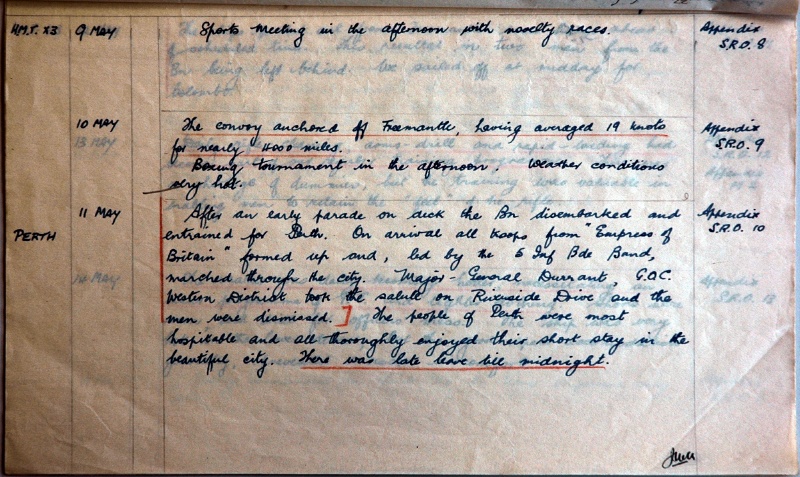 H.M.T. X3 9 MAY Sports Meeting in the afternoon with novelty races. Appendix
S.R.O. 8
10 MAY The convoy anchored off Freemantle, having averaged 19 knots Appendix
for nearly 4000 miles. S.R.O. 9
Boxing Tournament in the afternoon. Weather conditions
very hot.
11 MAY After an early parade on deck the Bn disembarked and Appendix
PERTH entrained for Perth. On arrival all troops from "Empress of S.R.O. 10
Britain" formed up and, led by the 5 Inf Bde Band,
marched through the city. Major-General Durrant, G.O.C.
Western District took the salute on Riverside Drive and the
men were dismissed. ] The people of Perth were most
hospitable and all thoroughly enjoyed their short stay in the
beautiful city. There was late leave till midnight.